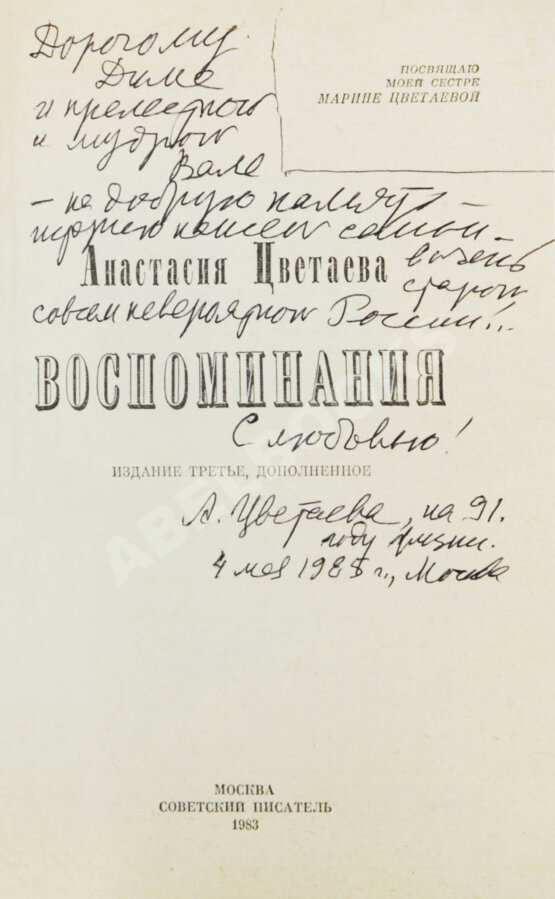 Дорогому
Диме
и прелестной
и мудрой
Вале
– на добрую память –
нашей
Посвящаю
моей сестре
Марине Цветаевой
Анастасия Цветаева
в очень
старой
совсем невероятной России!..
Воспоминания
С любовью!
Издание третье, дополненное
А. Цветаева, на 91.
году жизни.
4 мая 1985 г., Москва
Москва
Советский писатель
1983